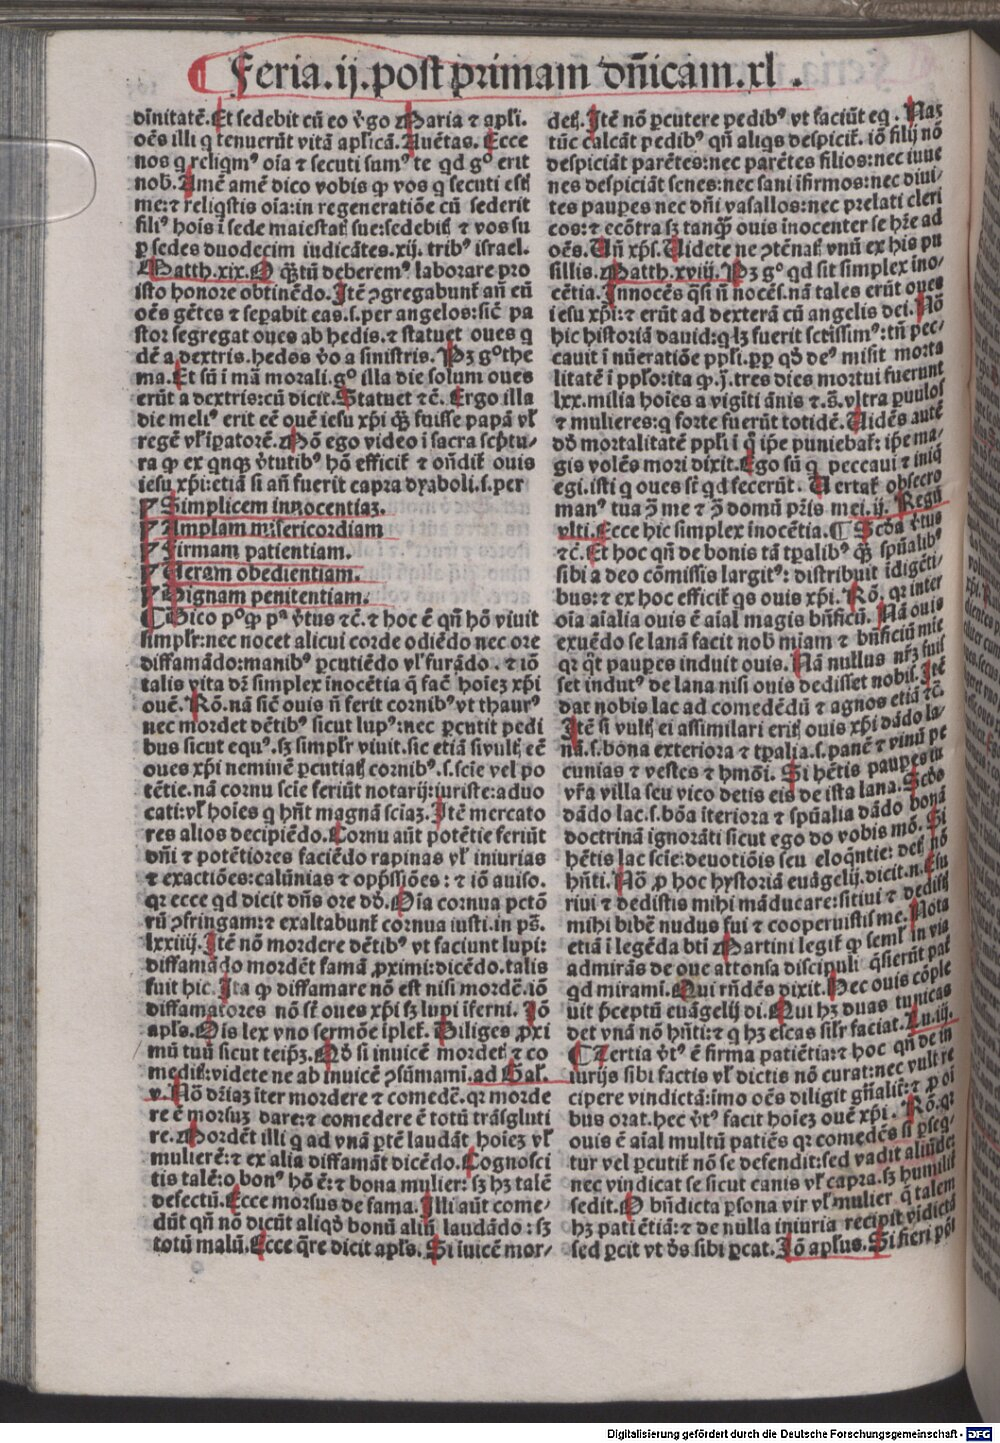 Feria.ij.post primam dñicam.xl.
diuītatē. Et sedebit cū eo v̓go Maria ⁊ apl̓i.
oēs illi q tenuerūt vitā apl̓icā. Auētas. Ecce
nos q reliqimꝰ oīa ⁊ secuti sumꝰ te qd gº erit
nob̓. Amē amē dico vobis ꝙ vos q secuti estꝭ
me:⁊ reliqstis oīa:in regeneratiōe cū sederit
filiꝰ hoīs ī sede maiestatꝭ sue:sedebitꝭ ⁊ vos su
ꝑ sedes duodecim iudicātes.xij. tribꝰ israel.
Matth.xix. O q̄ꝫtū deberemꝰ laborare pro
isto honore obtinēdo. Itē ꝯgregabunt̓ añ eū
oēs gētes ⁊ seꝑabit eas.s.per angelos:sic̄ pa
stor segregat oues ab hedis.⁊ statuet oues q
dē a dextris.hedos v̓o a sinistris. Pꝫ gº the
ma. Et sū ī mā morali.gº illa die solum oues
erūt a dextris:cū dicit. Statuet ⁊c̄. Ergo illa
die meliꝰ erit eē ouē iesu xp̄i q̄ꝫ fuisse papā vl̓
regē vl̓ īꝑatorē. Mō ego video ī sacra scp̄tu/
ra ꝙ ex qnqꝫ v̓tutibꝰ hō efficit̓ ⁊ oñdit̓ ouis
iesu xp̄i:etiā si añ fuerit capra dyaboli.s.per
¶ Simplicem innocentiaꝫ.
¶ Amplam misericordiam
¶ Firmam patientiam.
¶ Ueram obedientiam.
¶ Dignam penitentiam.
¶ Dico pº ꝙ pª v̓tus ⁊c̄. ⁊ hoc ē qñ hō viuit
simplr̓:nec nocet alicui corde odiēdo nec ore
diffamādo:manibꝰ ꝑcutiēdo vl̓ furādo. ⁊ iō
talis vita dr̄ simplex īnocētia q̄ fac̄ hoīeꝫ xp̄i
ouē. Rō. nā sic̄ ouis ñ ferit cornibꝰ vt thaurꝰ
nec mordet dētibꝰ sicut lupꝰ:nec ꝑcutit pedi
bus sicut equꝰ.sꝫ simplr̓ viuit.sic etiā si vultꝭ eē
oues xp̄i neminē ꝑcutiatꝭ cornibꝰ.s.scīe vel po
tētie.nā cornu scīe feriūt notarij:iuriste:aduo
cati:vl̓ hoīes q hñt magnā sciaꝫ. Itē mercato
res alios decipiēdo. Cornu aūt potētie feriūt
dñi ⁊ potētiores faciēdo rapinas vl̓ iniurias
⁊ exactiōes:calūnias ⁊ opp̄ssiōes:⁊ iō auiso.
qꝛ ecce qd dicit dñs ore dd̓. Oīa cornua pctō
rū ꝯfringam:⁊ exaltabunt̓ cornua iusti.in ps̄.
lxxiiij. Itē nō mordere dētibꝰ vt faciunt lupi:
diffamādo mordēt famā ꝓximi:dicēdo.talis
fuit hic. Ita ꝙ diffamare nō est nisi mordē.iō
diffamatores nō st̄ oues xp̄i sꝫ lupi īferni. Iō
apl̓s. Ois lex vno sermōe īplet̓. Diliges ꝓxi
mū tuū sicut teip̄ꝫ. Qd̓ si inuicē mordetꝭ ⁊ co
meditꝭ:videte ne ab inuicē ꝯsūmamī.ad Gal̓.
v. Nō dr̄iaꝫ īter mordere ⁊ comedē.qꝛ morde
re ē morsuꝫ dare:⁊ comedere ē totū trāsgluti
re. Mordēt illi q ad vnā ꝑtē laudāt hoīeꝫ vl̓
mulierē:⁊ ex alia diffamāt dicēdo. Cognosci
tis talē:o bonꝰ hō ē:⁊ bona mulier: sꝫ hꝫ talē
defectū. Ecce morsus de fama. Illi aūt come/
dūt qñ nō dicūt aliqd̓ bonū aliū laudādo:sꝫ
totū malū. Ecce q̄re dicit apl̓s. Si īuicē mor/
detꝭ. Itē nō ꝑcutere pedibꝰ vt faciūt eq. Naꝫ
tūc calcāt pedibꝰ qñ aliqs despicit̓. iō filij nō
despiciāt parētes:nec parētes filios:nec iuue
nes despiciāt senes:nec sani īfirmos:nec diui/
tes pauꝑes nec dñi vasallos:nec prelati cleri
cos:⁊ ecōtra sꝫ tanqꝫ ouis inocenter se hr̄e ad
oēs. Uñ xp̄s. Uidete ne ꝯtēnatꝭ vnū ex his pu
sillis. Matth.xviij. Pꝫ gº qd sit simplex īno/
cētia. Innocēs q̄si ñ nocēs.nā tales erūt oues
iesu xp̄i:⁊ erūt ad dexterā cū angelis dei. Nō
hic historiā dauid:q lꝫ fuerit sctissimꝰ:tñ pec/
cauit ī nūeratiōe ppl̓i.ꝓꝑ qd̓ deꝰ misit morta
litatē ī ppl̓o:ita ꝙ.ꝫ.tres dies mortui fuerunt
lxx.milia hoīes a vigīti ānis ⁊.s̄.vltra ꝑuulos
⁊ mulieres:q forte fuerūt totidē. Uidēs autē
dd̓ mortalitatē ppl̓i ī q̄ ip̄e puniebat̓: ip̄e ma/
gis volēs mori dixit. Ego sū q peccaui ⁊ iniq
egi.isti q oues st̄ qd fecerūt. Uertat̓ obsecro
manꝰ tua ꝯ me ⁊ ꝯ domū pr̄is mei.ij. Regū
vlti. Ecce hic simplex īnocētia. ¶ Scd̓a v̓tus
⁊c̄. Et hoc qñ de bonis tā tꝑalibꝰ q̄ꝫ spūalibꝰ
sibi a deo cōmissis largitꝰ: distribuit īdigēti/
bus:⁊ ex hoc efficit̓ qs ouis xp̄i. Rō. qꝛ inter
oīa aīalia ouis ē aīal magis bñficū. Nā ouis
exuēdo se lanā facit nob̓ miam ⁊ bñficiū mie
qꝛ q̄t pauꝑes induit ouis. Nā nullus nr̄ꝫ fuis
set indutꝰ de lana nisi ouis dedisset nobis. Itē
dat nobis lac ad comedēdū ⁊ agnos etiā ⁊c̄.
Itē si vultꝭ ei assimilari eritꝭ ouis xp̄i dādo la/
nā.s.bona exteriora ⁊ tꝑalia.s.panē ⁊ vinū pe
cunias ⁊ vestes ⁊ hmōi. Si hētis pauꝑes in
vr̄a villa seu vico detis eis de ista lana. Scd̓o
dādo lac.s.bōa īteriora ⁊ spūalia dādo bonā
doctrinā ignorāti sicut ego do vobis mō. Si
hētis lac scīe:deuotiōis seu eloq̄ntie: detꝭ nō
hñti. Nō ꝓ hoc hystoriā euāgelij.dicit.n. Esu
riui ⁊ dedistis mihi māducare:sitiui ⁊ dedistꝭ
mihi bibē nudus fui ⁊ cooperuistis me. Nota
etiā ī legēda bti Martini legit̓ ꝙ seml̓ in via
admirās de oue attonsa discipuli q̄sierūt pat̓
qd mirami. Qui rn̄dēs dixit. Hec ouis cōple
uit p̄ceptū euāgelij di. Qui hꝫ duas tunicas
det vnā nō hñti:⁊ q hꝫ escas sil̓r faciat. Lu.iij.
¶ Tertia v̓tꝰ ē firma patiētia:⁊ hoc qñ de in
iurijs sibi factis vl̓ dictis nō curat:nec vult re
cipere vindictā:īmo oēs diligit gñalit̓:⁊ ꝓ oī
bus orat.hec v̓tꝰ facit hoīeꝫ ouē xp̄i. Rō. qꝛ
ouis ē aīal multū patiēs qꝛ comedēs si ꝑseq/
tur vel ꝑcutit̓ nō se defendit:sed vadit aliūde:
nec vindicat se sicut canis vl̓ capra.sꝫ humilit̓
sedit. O bñdicta ꝑsona vir vl̓ mulier q̄ talem
hꝫ patiētiā:⁊ de nulla iniuria recipit vīdictā
sed ꝑcit vt dꝰs sibi ꝑcat. Iō apl̓us. Si fieri pōt
Digitalisierung gefördert durch die Deutsche Forschungsgemeinschaft - DFG